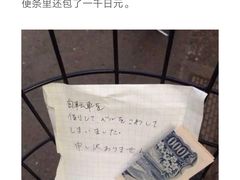 便条里还包了一千日元。
自転車を
借りして ベルをこわして
しまいました。
申し訳ありません
1000